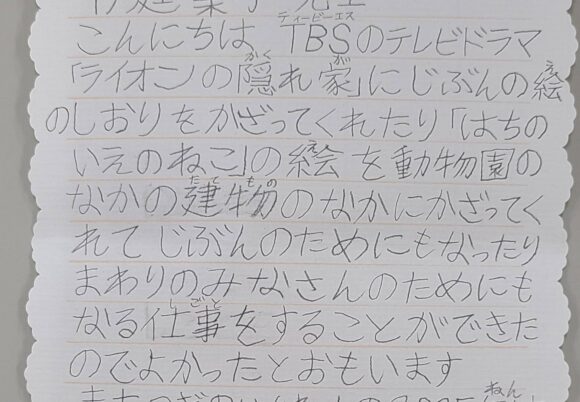 こんにちは TBSのテレビドラマ
「ライオンの隠れ家」にじぶんの絵
のしおりをかざってくれたり「はちの
いえのねこ」の絵を動物園の
なかの建物のなかにかざってく
れてじぶんのためにもなったり
まわりのみなさんのためにも
なる仕事をすることができた
のでよかったとおもいます